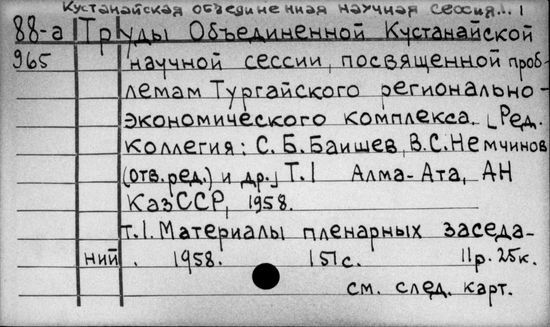 Кустанайская объединенная научная сессия... 1
88-а Труды Объединенной Кустанайской
965 научной сессии, посвященной проб-
лемам Тургайского регионально-
экономического комплекса. [Ред.
коллегия: С. Б. Баишев, В. С. Немчинов
(отв. ред.) и др.] Т. 1 Алма-Ата, АН
КазССР, 1958.
т. 1. Материалы пленарных заседа-
ний. 1958. 151 с. 11р. 25к.
см. след. карт.